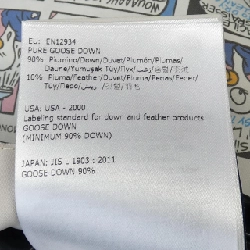 EU: EN12934
PURE GOOSE DOWN
90% Piumino/Down/Duvet/Plumón/Plumas/
Daune/Yumuşak Tüy/Пух/زغب/솜털/羽绒
10% Piuma/Feather/Plume/Pluma/Penas/Feder/
Tüy/Перо/ريش/깃털/羽毛
USA: USA - 2000
Labeling standard for down and feather products
GOOSE DOWN
(MINIMUM 90% DOWN)
JAPAN: JIS L 1903 : 2011
GOOSE DOWN 90%